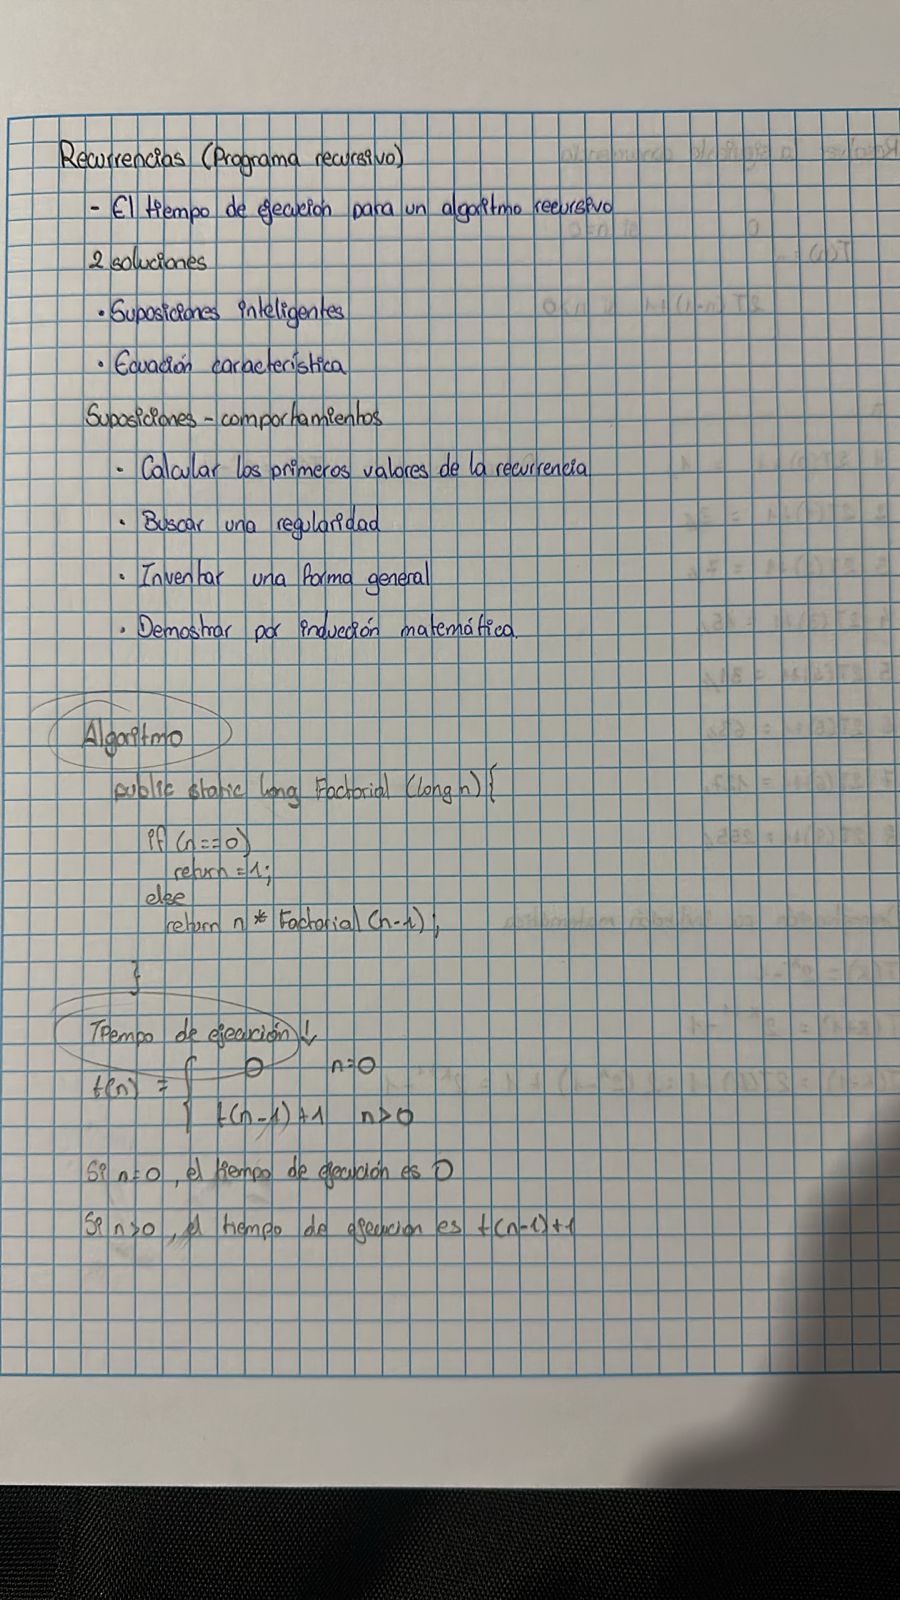 Recurrencias (Programa recursivo)
- El tiempo de ejecución para un algoritmo recursivo
2 soluciones
• Suposiciones inteligentes
• Ecuación característica
Suposiciones - comportamientos
• Calcular los primeros valores de la recurrencia
• Buscar una regularidad
• Inventar una forma general
• Demostrar por inducción matemática.
Algoritmo
public static long Factorial (long n) {
if (n==0)
return = 1;
else
return n * Factorial (n-1);
}
Tiempo de ejecución ↓
t(n) = { 0 n=0
t(n-1)+1 n>0
Si n=0, el tiempo de ejecución es 0
Si n>0, el tiempo de ejecucion es t(n-1)+1